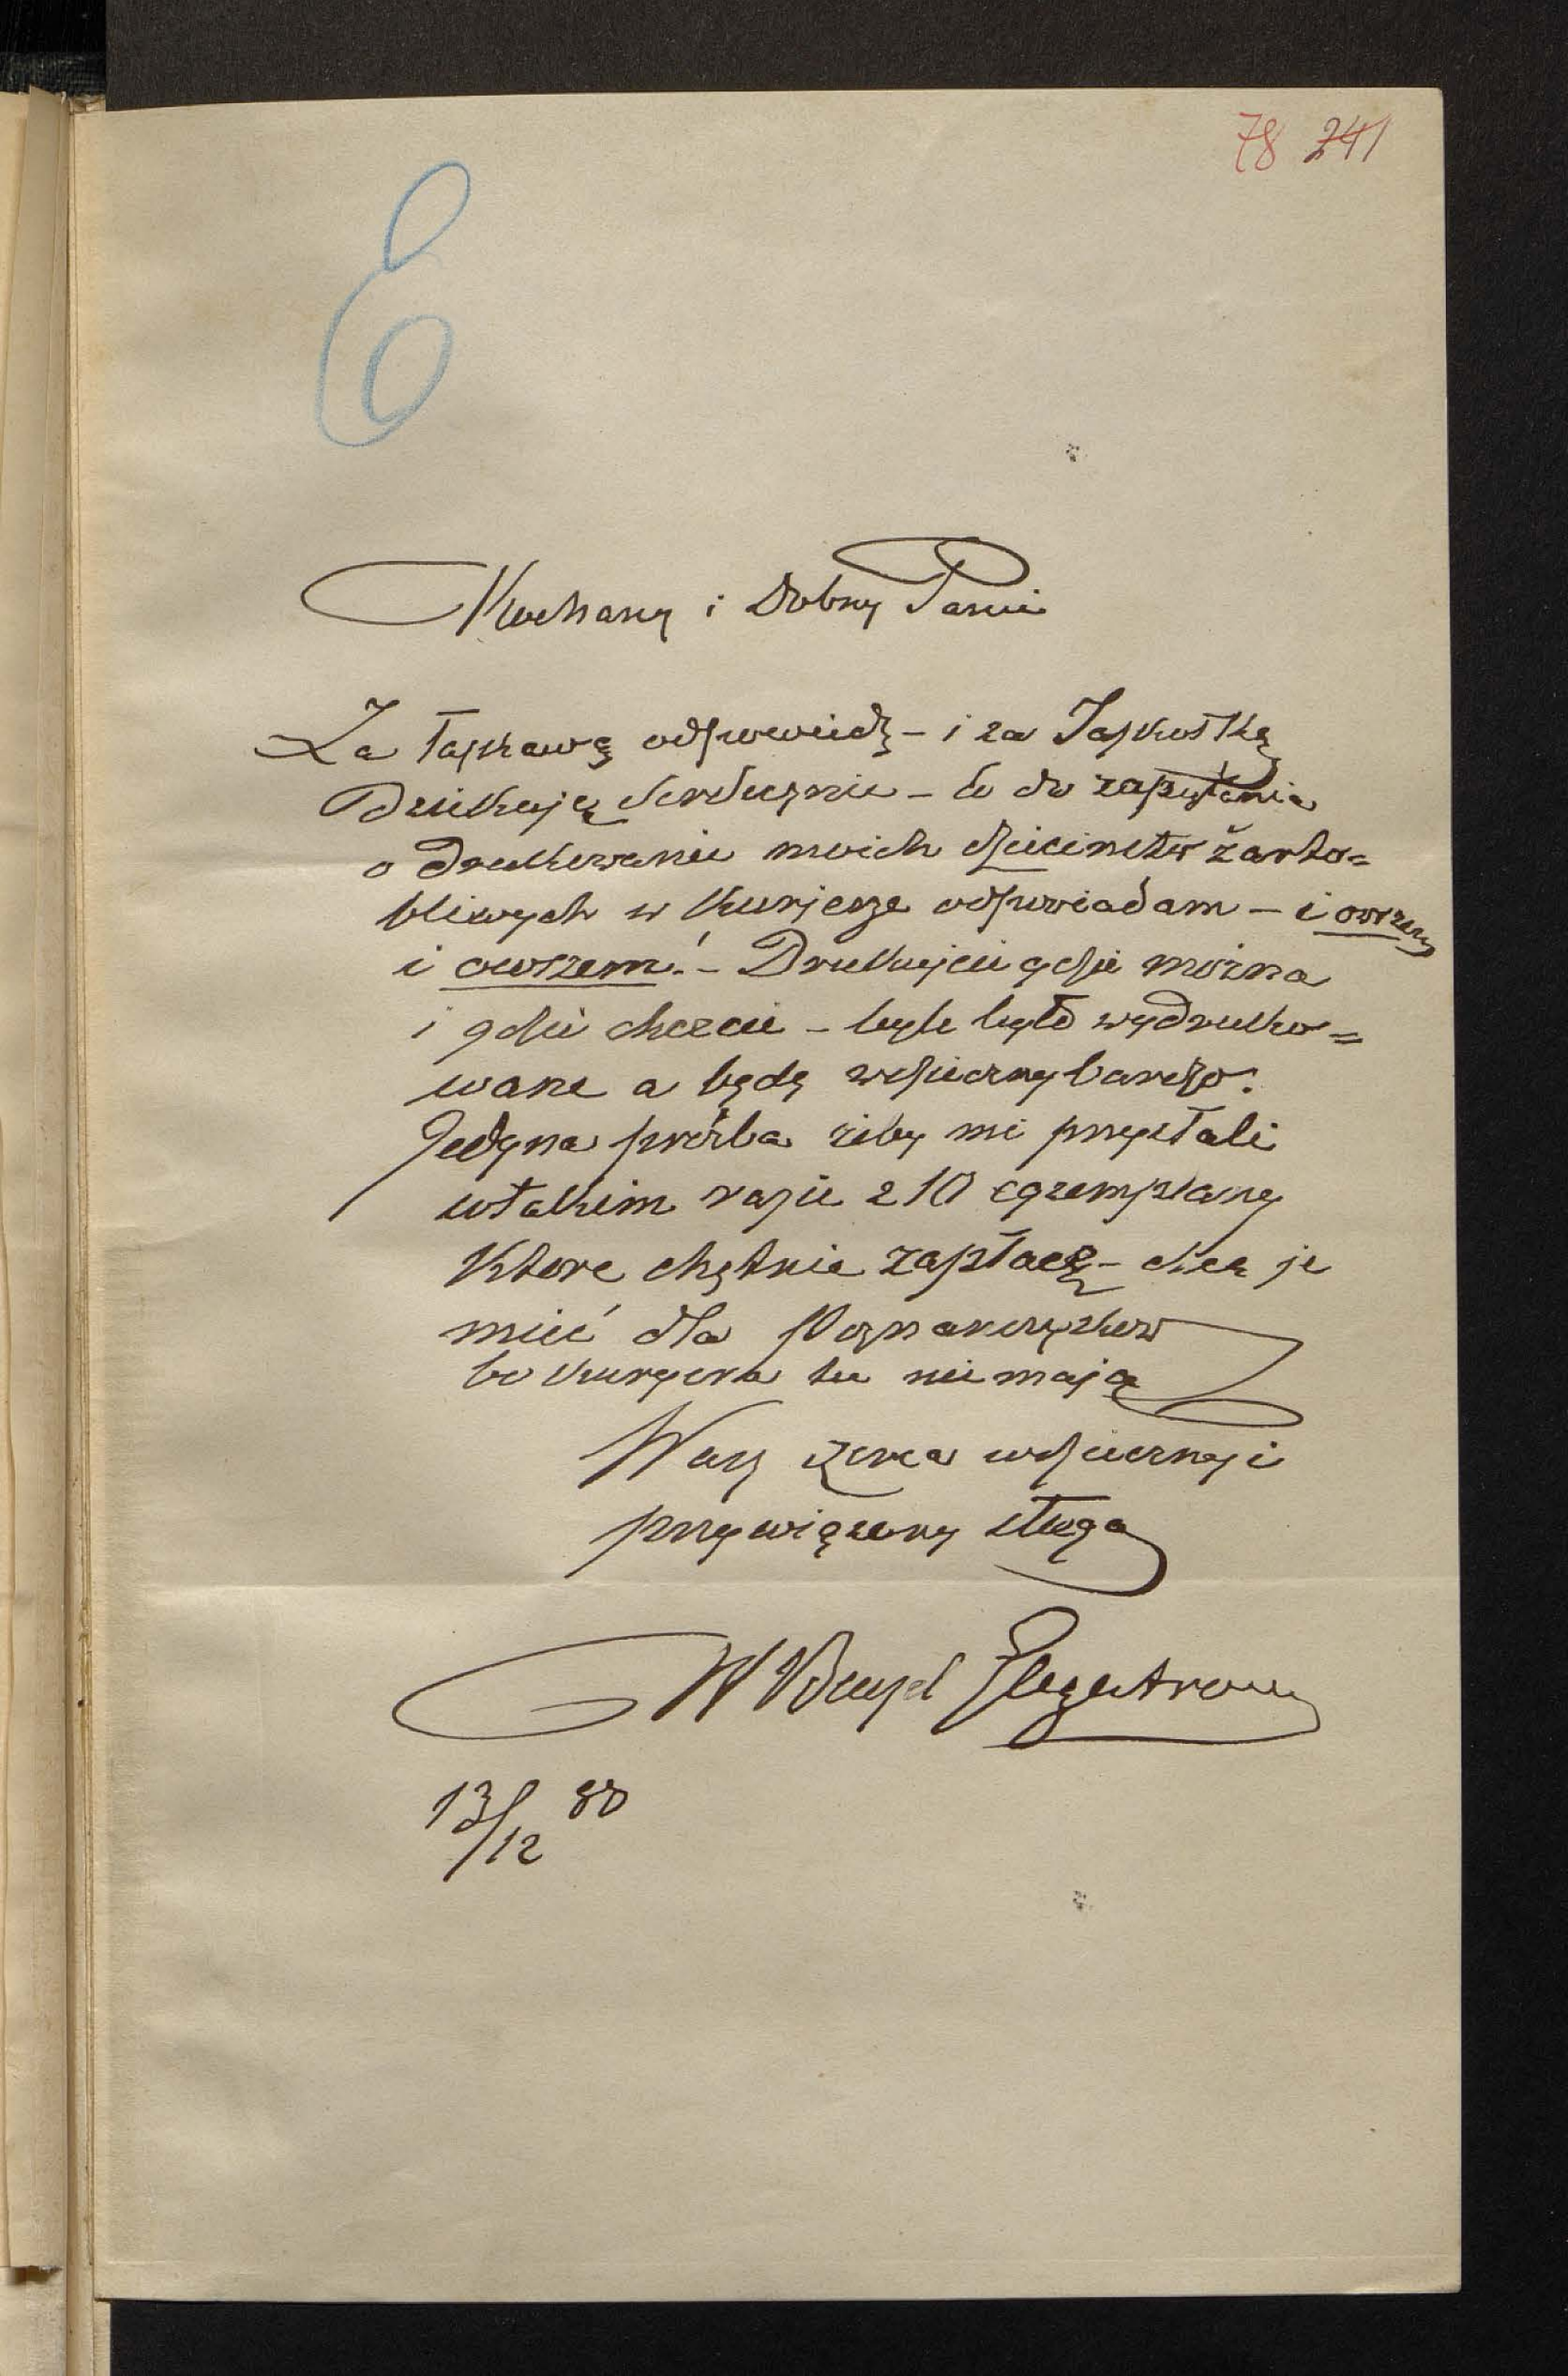 78 241
E
Kochany i Dobry Panie
Za łaskawą odpowiedź – i za Jaskółkę
Dziękuję Serdecznie – Co do zapytania
o Drukowanie moich dzieciństw żarto=
bliwych w Kurjerze odpowiadam – i owszem
i owszem! – Drukujcie gdzie można
i gdzie chcecie – byle było wydruko=
wane a będę wdzięczny bardzo.
Jedyna prośba żeby mi przysłali
w takim razie 2 10 egzemplarzy
Które chętnie zapłacę – chcę je
mieć dla Poznańczyków
bo Kuryera tu nie mają
Wasz serca wdzięczny i
przywiązany sługa
W
13/12 80